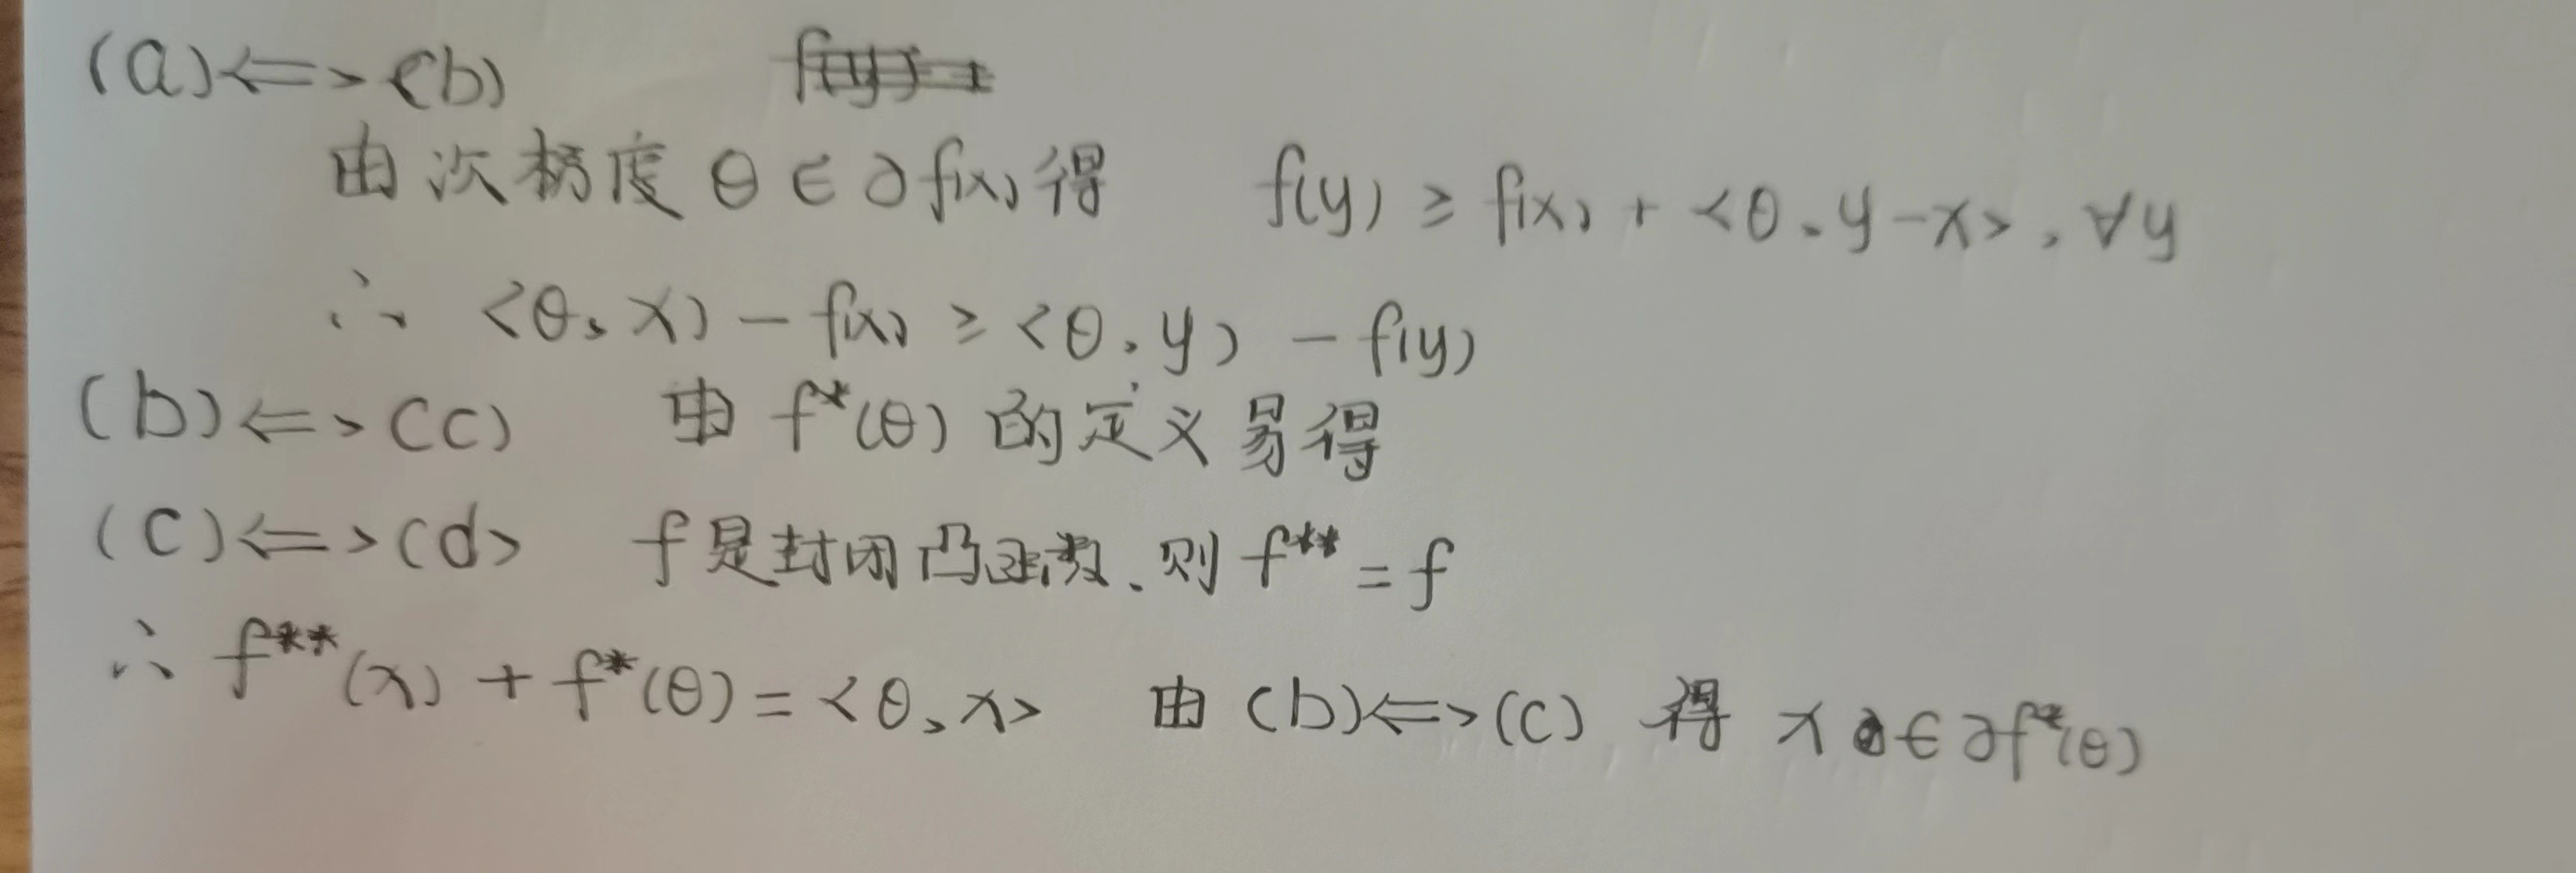 (a)<=>(b)
由次梯度 θ∈∂f(x)得 f(y)≥f(x)+<θ,y-x>,∀y
∴ <θ,x)-f(x)≥<θ,y)-f(y)
(b)<=>(c) 由 f*(θ) 的定义易得
(c)<=>(d> f是封闭凸函数.则 f**=f
∴ f**(x)+f*(θ)=<θ,x> 由(b)<=>(c) 得 x∈∂f*(θ)